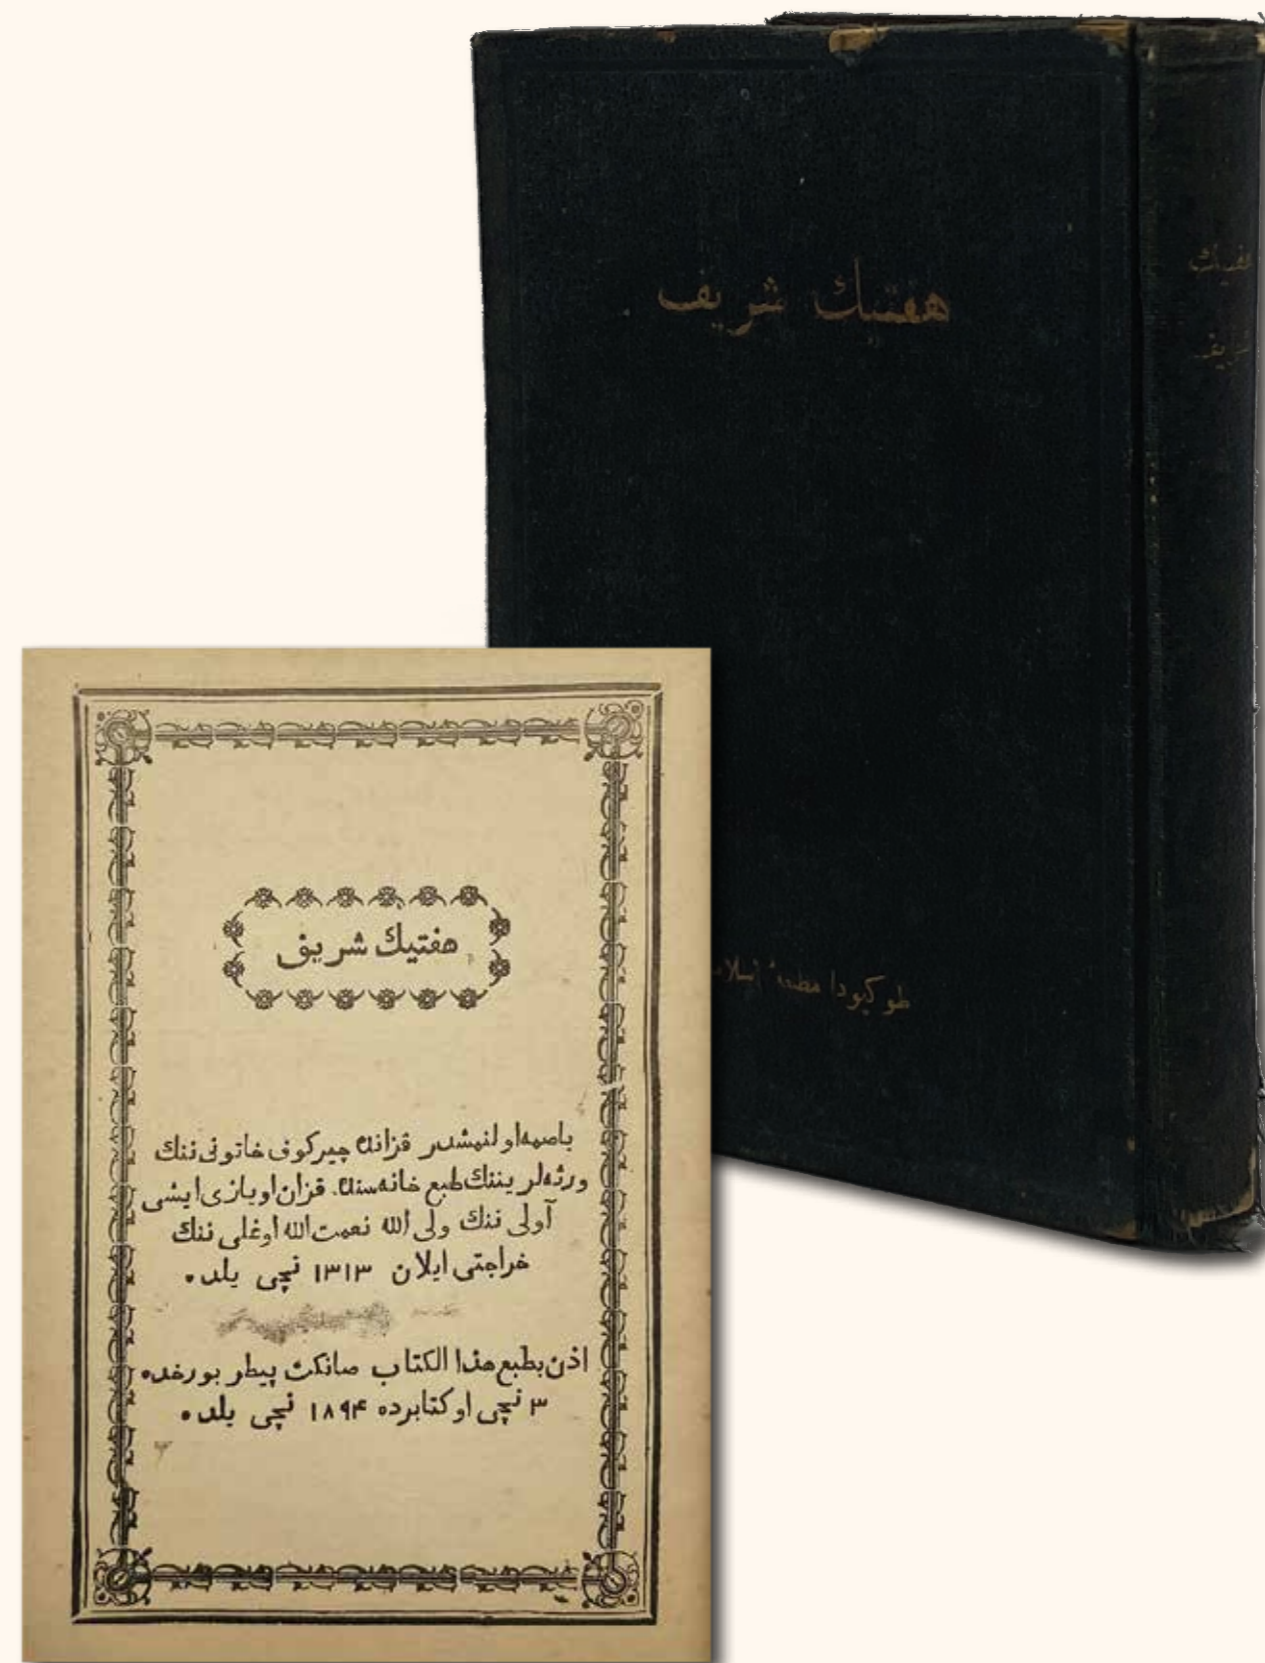 هفتيك شريف
هفتيك
شريف
طوكيودا مطبعهٔ اسلامـ
هفتيك شريف
باصمه اولنمشدر قزانده چيركوف خاتونى ننك
ورثه لريننك طبع خانه سنده. قزان اويازى ايشى
آولى ننك ولى الله نعمت الله اوغلى ننك
خراجتى ايلان ١٣١٣ نچى يلده
اذن بطبع هذا الكتاب صانكت پيطر بورغده
٣ نچى اوكتابرده ١٨٩۴ نچى يلده